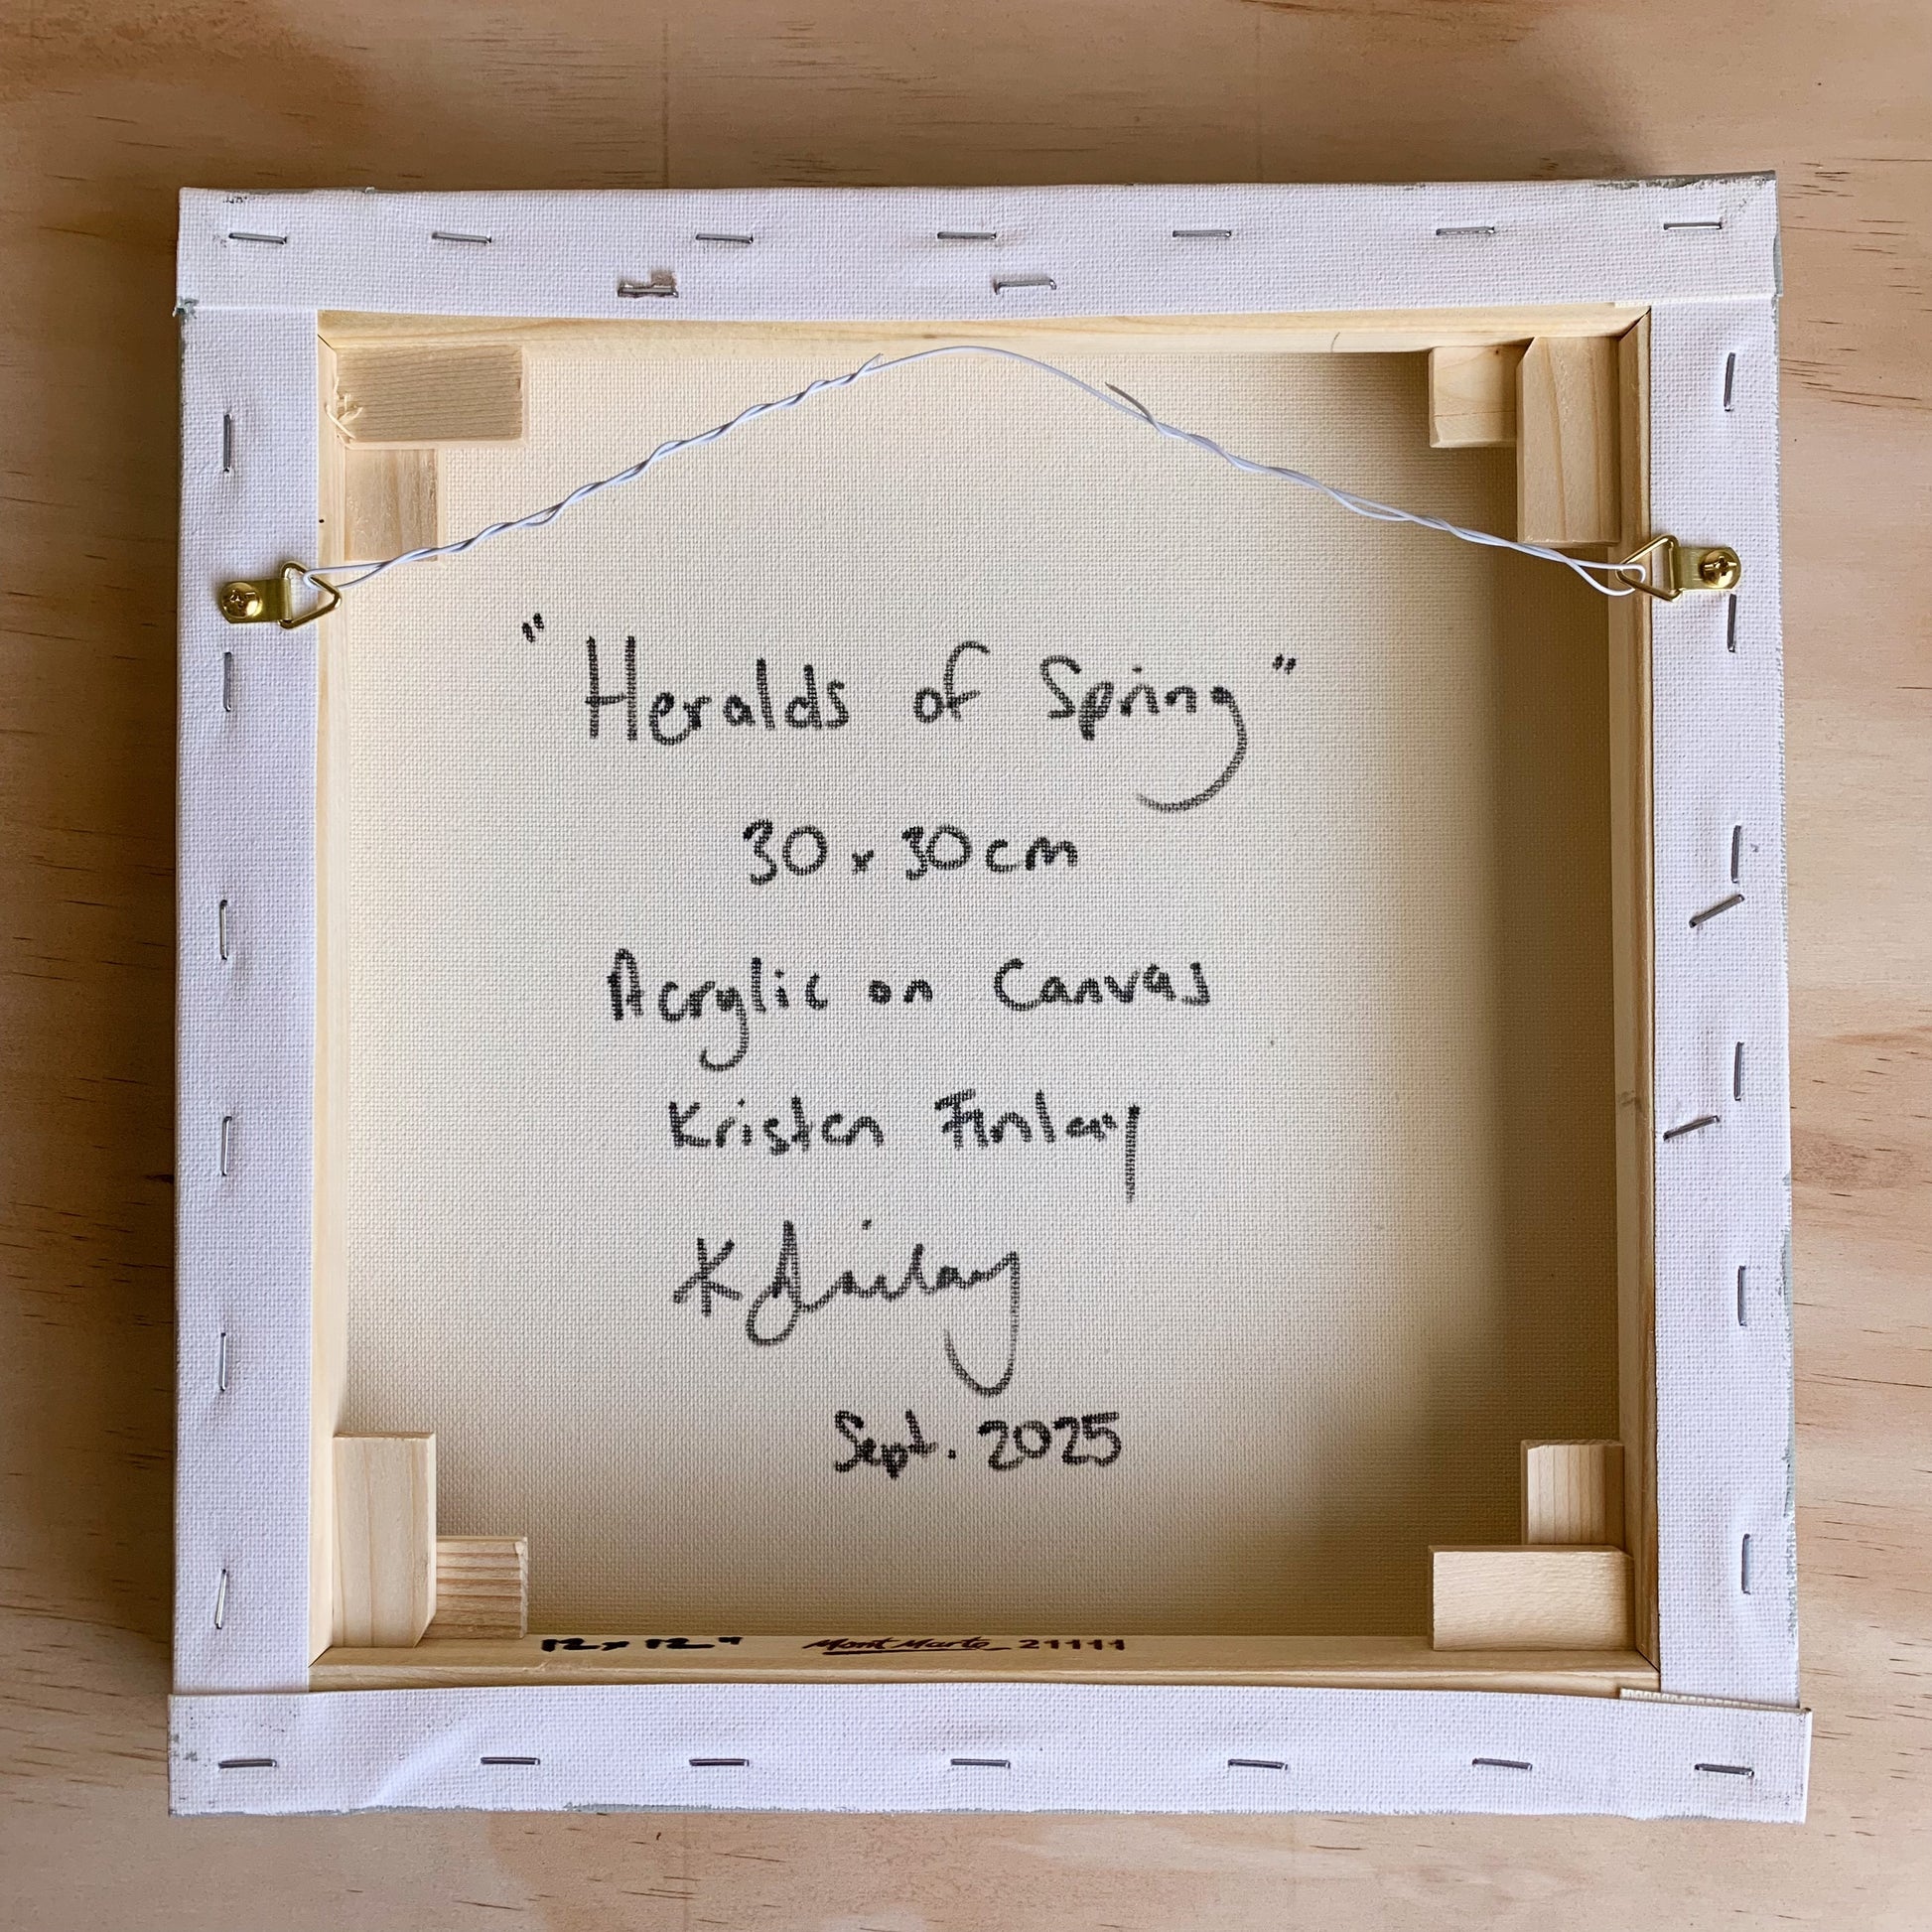 "Heralds of Spring"
30 x 30cm
Acrylic on Canvas
Kristen Finlay
K Finlay
Sept. 2025
12 x 12" Mont Marte 21111